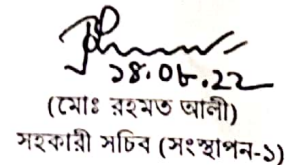 ১৪.০৮.২২
(মোঃ রহমত আলী)
সহকারী সচিব (সংস্থাপন-১)